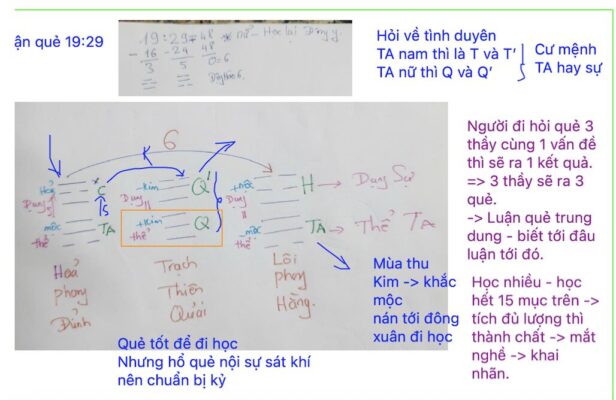 ận quẻ 19:29
19:29 = 48
- 16 - 24 48
3 5 0=6
Hỏi về tình duyên
TA nam thì là T và T'
TA nữ thì Q và Q'
Cư mệnh
TA hay sự
6
K
Hoả
Dụng
mộc
thể
C
TS
TA
+Kim
Dụng
+Kim
thể
Q'
Q
+mộc
Dụng
mộc
thể
H -> Dụng Sự
TA -> Thể TA
Hoả
phong
Đỉnh
Trạch
Thiên
Quải
Lôi
phong
Hằng.
Người đi hỏi quẻ 3
thầy cùng 1 vấn đề
thì sẽ ra 1 kết quả.
=> 3 thầy sẽ ra 3
quẻ.
-> Luận quẻ trung
dung - biết tới đâu
luận tới đó.
Mùa thu
Kim -> khắc
mộc
nán tới đông
xuân đi học
Học nhiều - học
hết 15 mục trên ->
tích đủ lượng thì
thành chất -> mắt
nghề -> khai
nhãn.
Quẻ tốt để đi học
Nhưng hổ quẻ nội sự sát khí
nên chuẩn bị kỷ